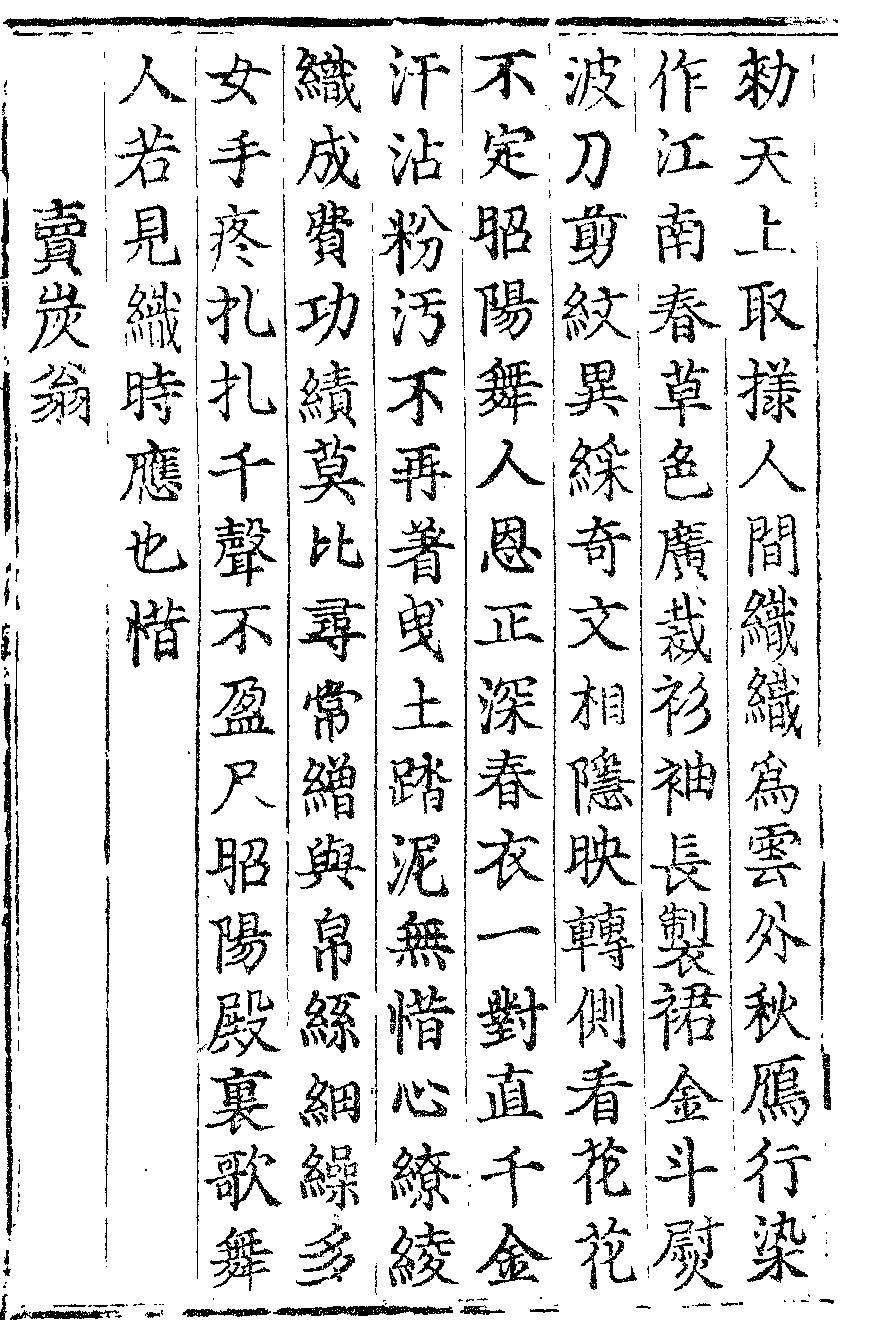 勑天上取様人間織織爲雲外秋鴈行染
作江南春草色廣裁衫袖長製裙金斗熨
波刀剪紋異綵奇文相隱映轉側看花花
不定昭陽舞人恩正深春衣一對直千金
汗沾粉汚不再著曳土踏泥無惜心繚綾
織成費功績莫比尋常繒與帛絲細繰多
女手疼扎扎千聲不盈尺昭陽殿裏歌舞
人若見織時應也惜
賣炭翁